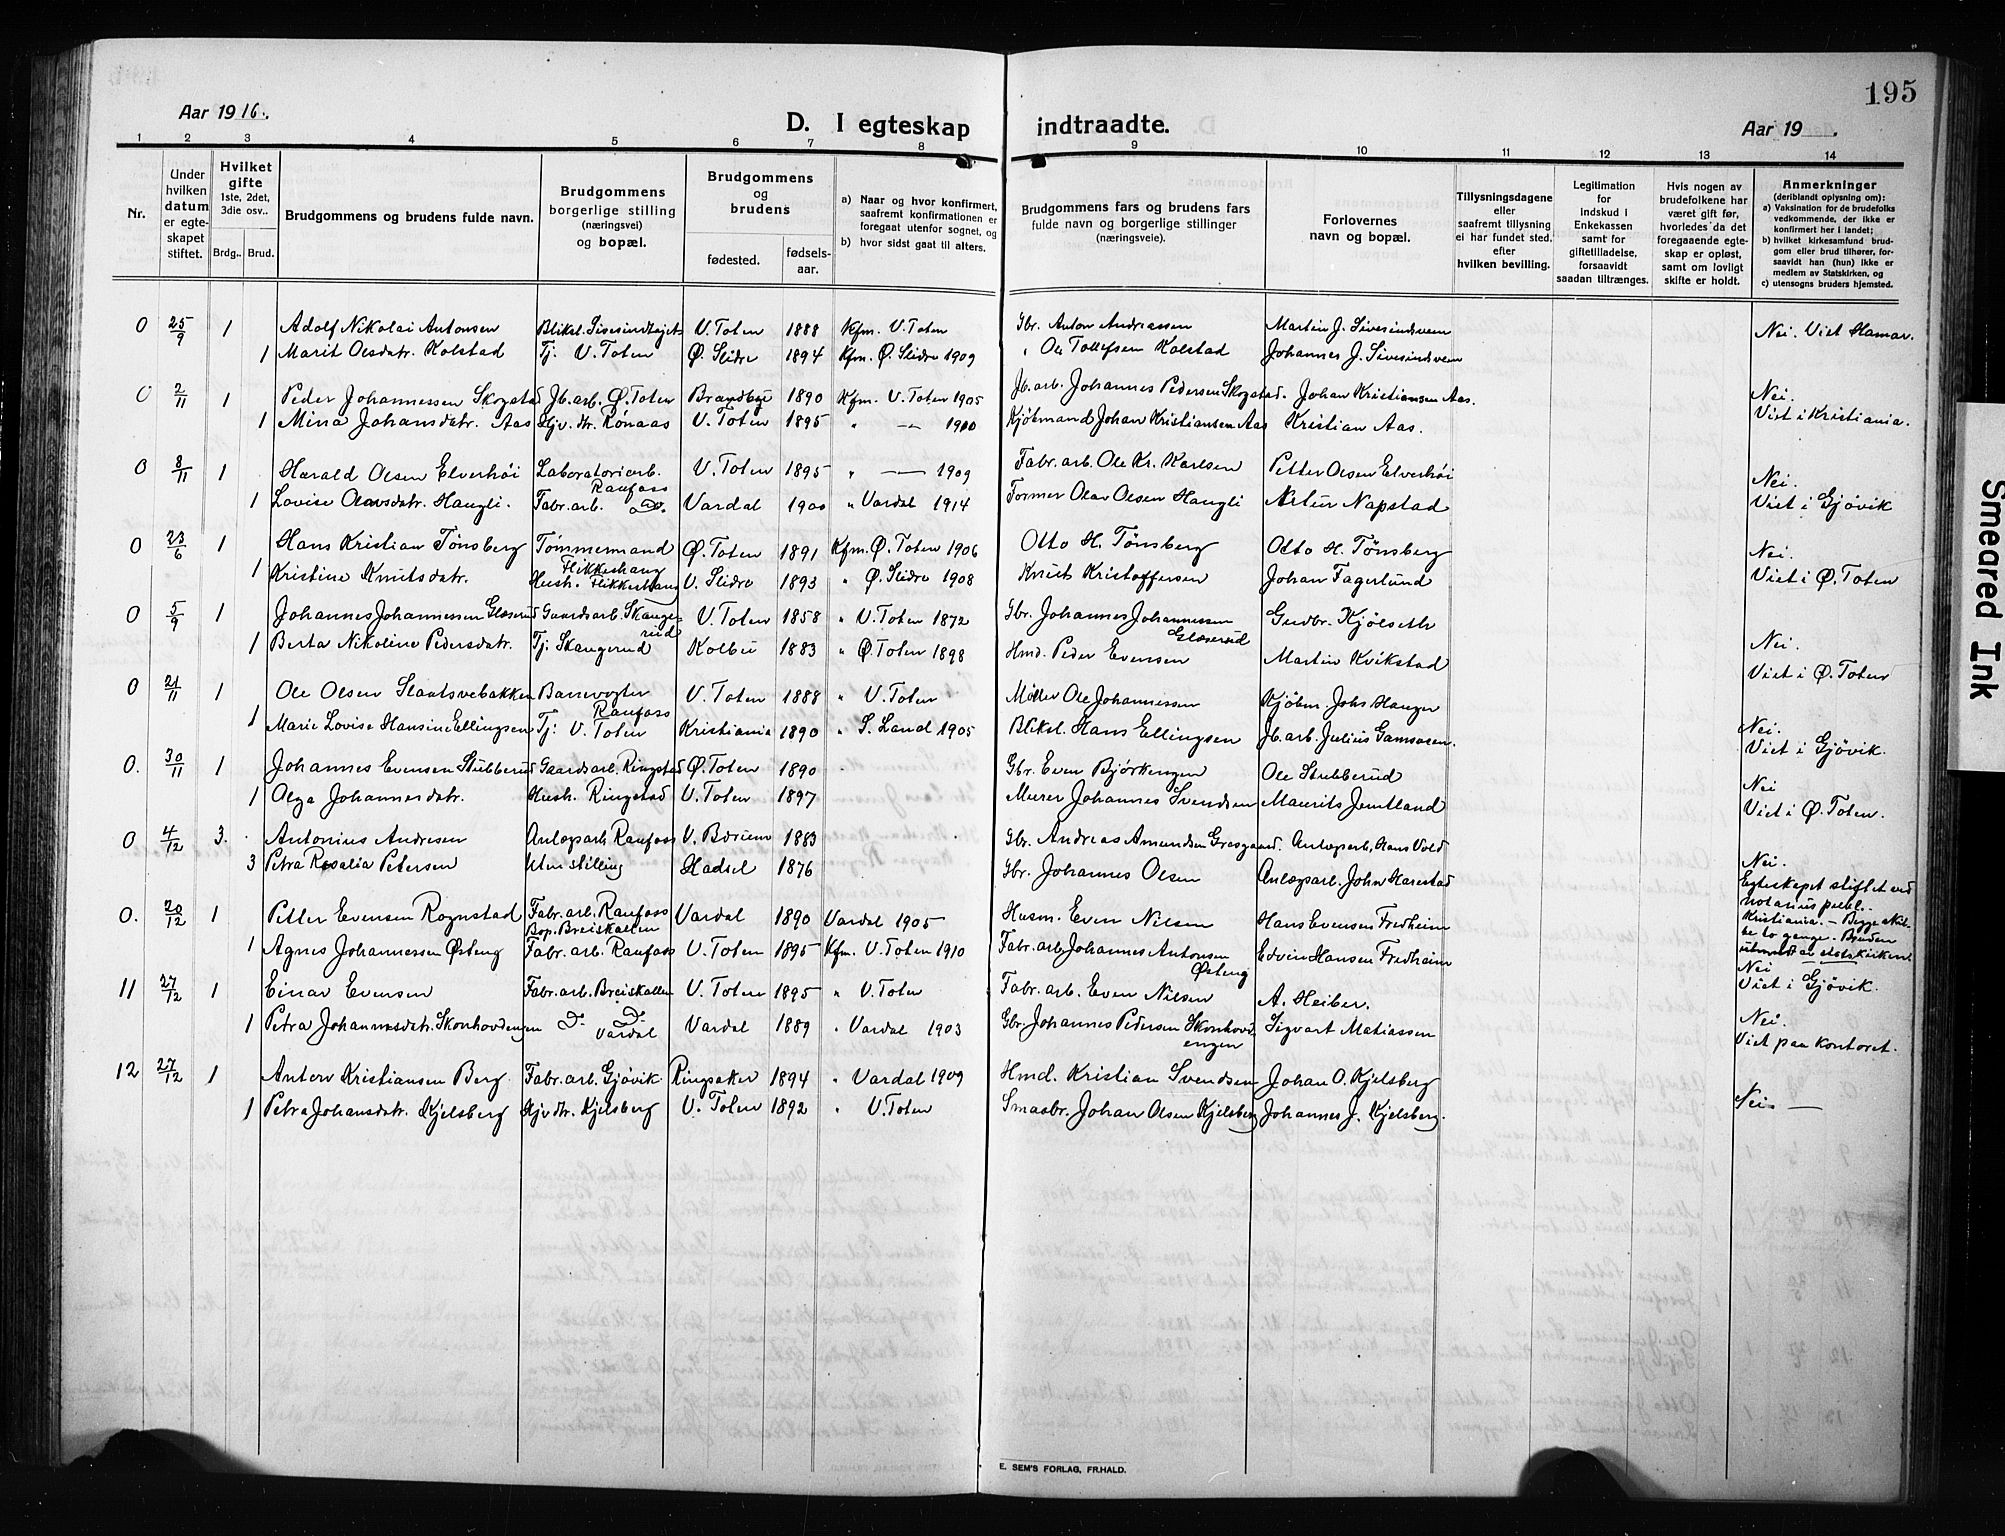 195
Aar 1916.
D. I egteskap indtraadte.
Aar 19 .
1 2 3 4 5 6 7 8 9 10 11 12 13 14
Nr.
Under hvilken datum er egteskapet stiftet.
Hvilket gifte 1ste, 2det, 3die osv..
Brdg.. Brud.
Brudgommens og brudens fulde navn.
Brudgommens borgerlige stilling (næringsvei) og bopæl.
Brudgommens og brudens
fødested. fødselsaar.
a) Naar og hvor konfirmert, saafremt konfirmationen er foregaat utenfor sognet, og
b) hvor sidst gaat til alters.
Brudgommens fars og brudens fars fulde navn og borgerlige stillinger (næringsveie).
Forlovernes navn og bopæl.
Tillysningsdagene eller saafremt tillysning ei har fundet sted, efter hvilken bevilling.
Legitimation for indskud i Enkekassen samt for giftetilladelse, forsaavidt saadan tiltrænges.
Hvis nogen av brudefolkene har været gift før, hvorledes da det foregaaende egteskap er opløst, samt om lovligt skifte er holdt.
Anmerkninger (deriblandt oplysning om):
a) Vaksination for de brudefolks vedkommende, der ikke er konfirmert her i landet;
b) hvilket kirkesamfund brudgom eller brud tilhører, forsaavidt han (hun) ikke er medlem av Statskirken, og
c) utensogns bruders hjemsted.
0 25/9 1 Adolf Nikolai Antonsen Bliksl. Sivesindhøjet V. Toten 1888 Kfm. V. Toten Gbr. Anton Andreassen Martin J. Sivesindsveen Nei. Viet Hamar.
1 Marit Olsdatr. Kolstad Tj. V. Toten Ø. Slidre 1894 Kfm. Ø. Slidre 1909 " Ole Tollefsen Kolstad Johannes J. Sivesindsveen
0 2/11 1 Peder Johannessen Skogstad Jb.arb. Ø. Toten Brandbu 1890 Kfm. V. Toten 1905 Jb.arb. Johannes Pedersen Skogstad. Johan Kristiansen Aas. Nei.
1 Mina Johansdatr. Aas Hjv. dtr. Rønaas V. Toten 1895 " — 1910 Kjøbmand Johan Kristiansen Aas Kristian Aas. Viet i Kristiania.
0 8/11 1 Harald Olsen Elverhøi Laboratoriarb. Raufoss V. Toten 1895 " — 1909 Fabr. arb. Ole Kr. Karlsen Petter Olsen Elverhøi Nei.
1 Lovise Olavsdatr. Haugli. Fabr. arb. Do. Vardal 1900 " Vardal 1914 Former Olav Olsen Haugli Artur Napstad Viet i Gjøvik
0 23/6 1 Hans Kristian Tønsberg Tømmermand Flikkeshaug Ø. Toten 1891 Kfm. Ø. Toten 1906 Otto H. Tønsberg Otto H. Tønsberg Nei.
1 Kristine Knutsdatr. Hush. Flikkeshaug V. Slidre 1893 " Ø. Slidre 1908 Knut Kristoffersen Johan Fagerlund Viet i Ø. Toten
0 5/9 1 Johannes Johannessen Glæserud Gaardsarb. Skangerud V. Toten 1858 " V. Toten 1872 Gbr. Johannes Johannessen Glæserud Gudbr. Kjölseth Nei.
1 Berta Nikoline Pedersdatr. Tj. Skangerud Kolbu 1883 " Ø. Toten 1898 Hmd. Peder Evensen Martin Kvikstad Viet i Ø. Toten
0 21/11 1 Ole Olsen Slaatsvebakken Banevogter Raufoss V. Toten 1888 " V. Toten Møller Ole Johannessen Kjøbm. Johs Hanger Nei.
1 Marie Lovise Hansine Ellingsen Tj. V. Toten Kristiania 1890 " S. Land 1905 Bliksl. Hans Ellingsen Jb.arb. Julius Gamsosen. Viet i Gjøvik.
0. 30/11 1 Johannes Evensen Stubberud Gaardsarb. Ringstad Ø. Toten 1890 Gbr. Even Bjørkengen Ole Stubberud Nei
1 Olga Johannesdatr. Hush. Ringstad V. Toten 1897 Murer Johannes Svendsen Maurits Jemtland Viet i Ø. Toten.
0 4/12 3. Antonius Andresen Anlægsarb. Raufoss V. Bærum 1883 Gbr. Andreas Amundsen Græsgaard. Anlægsarb. Hans Vold Nei.
3 Petra Rosalia Petersen Uten stilling Hadsel 1876 Gbr. Johannes Olsen Anlægsarb. John Harestad Egteskapet stiftet ved notarius publ. Kristiania. –
0. 20/12 1 Petter Evensen Rognstad Fabr. arb. Raufoss Bop. Breiskallen Vardal 1890 Vardal 1905 Husm. Even Nilsen Hans Evensen Fredheim
1 Agnes Johannessen Østeng Fabr. arb. Raufoss V. Toten 1895 Kfm. V. Toten 1910 Fabr. arb. Johannes Antonsen Østeng Edvin Hansen Fredheim Nei Viet i Gjøvik.
11 27/12 1 Einar Evensen Fabr. arb. Breiskallen V. Toten 1895 " V. Toten Fabr. arb. Even Nilsen A. Heiber. Nei.
1 Petra Johannesdatr. Skonhovdengen D. D. Vardal Vardal 1889 " Vardal 1903 Gbr. Johannes Pedersen Skonhovdengen Sigvart Matiassen Viet paa kontoret.
12 27/12 1 Anton Kristiansen Berg Fabr. arb. Gjøvik Ringsaker 1894 " Vardal 1909 Hmd. Kristian Svendsen Johan O. Kjelsberg
1 Petra Johansdatr. Kjelsberg Hjv dtr. Kjelsberg V. Toten 1892 " V. Toten Smaabr. Johan Olsen Kjelsberg Johannes J. Kjelsberg. Nei –
E. SEM'S FORLAG, FR.HALD.
Smeared Ink